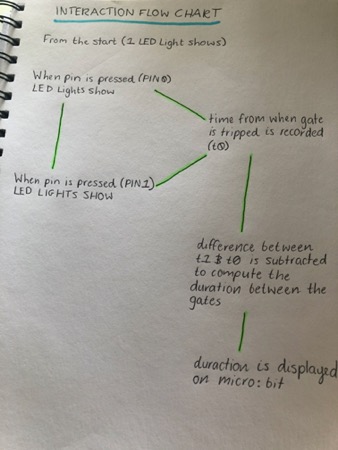 INTERACTION FLOW CHART
From the start (1 LED Light shows)
When pin is pressed (PIN0)
LED Lights Show
time from when gate
is tripped is recorded
(t0)
When pin is pressed (PIN1)
LED LIGHTS SHOW
difference between
t1 & t0 is subtracted
to compute the
duration between the
gates
duraction is displayed
on micro:bit